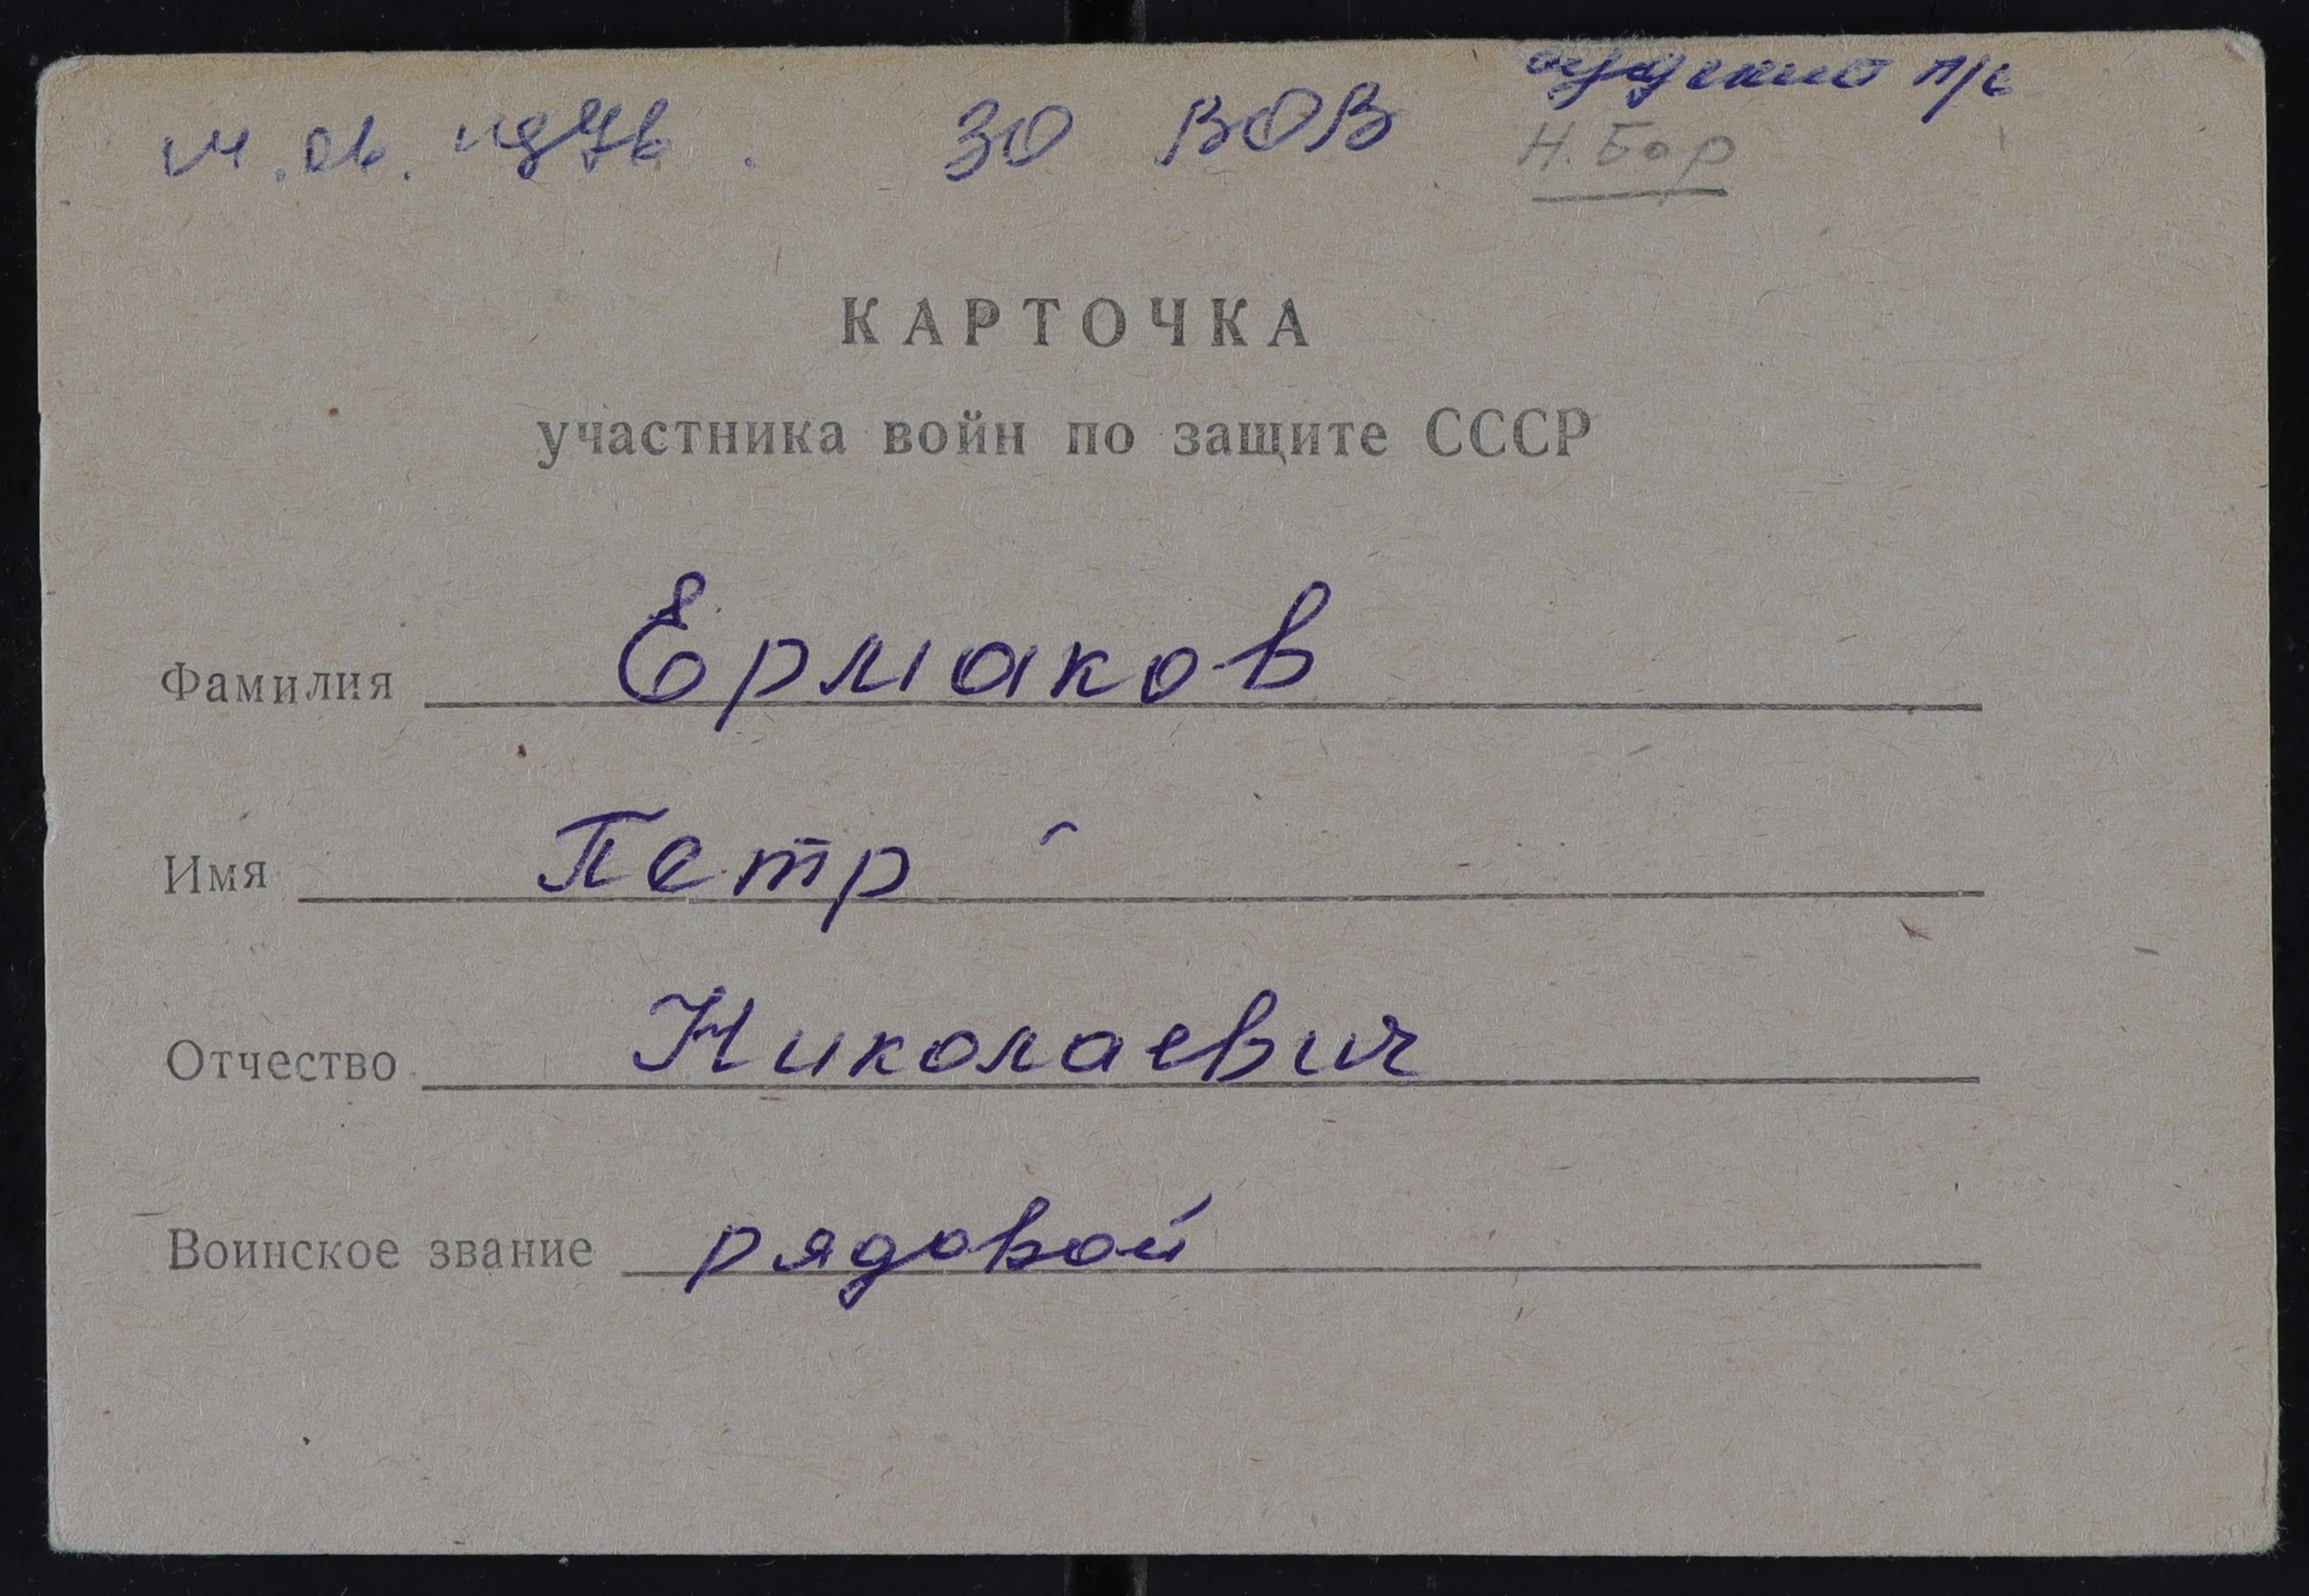 30 ВОВ
Н. Бор
КАРТОЧКА
участника войн по защите СССР
Фамилия Ермаков
Имя Петр
Отчество Николаевич
Воинское звание рядовой